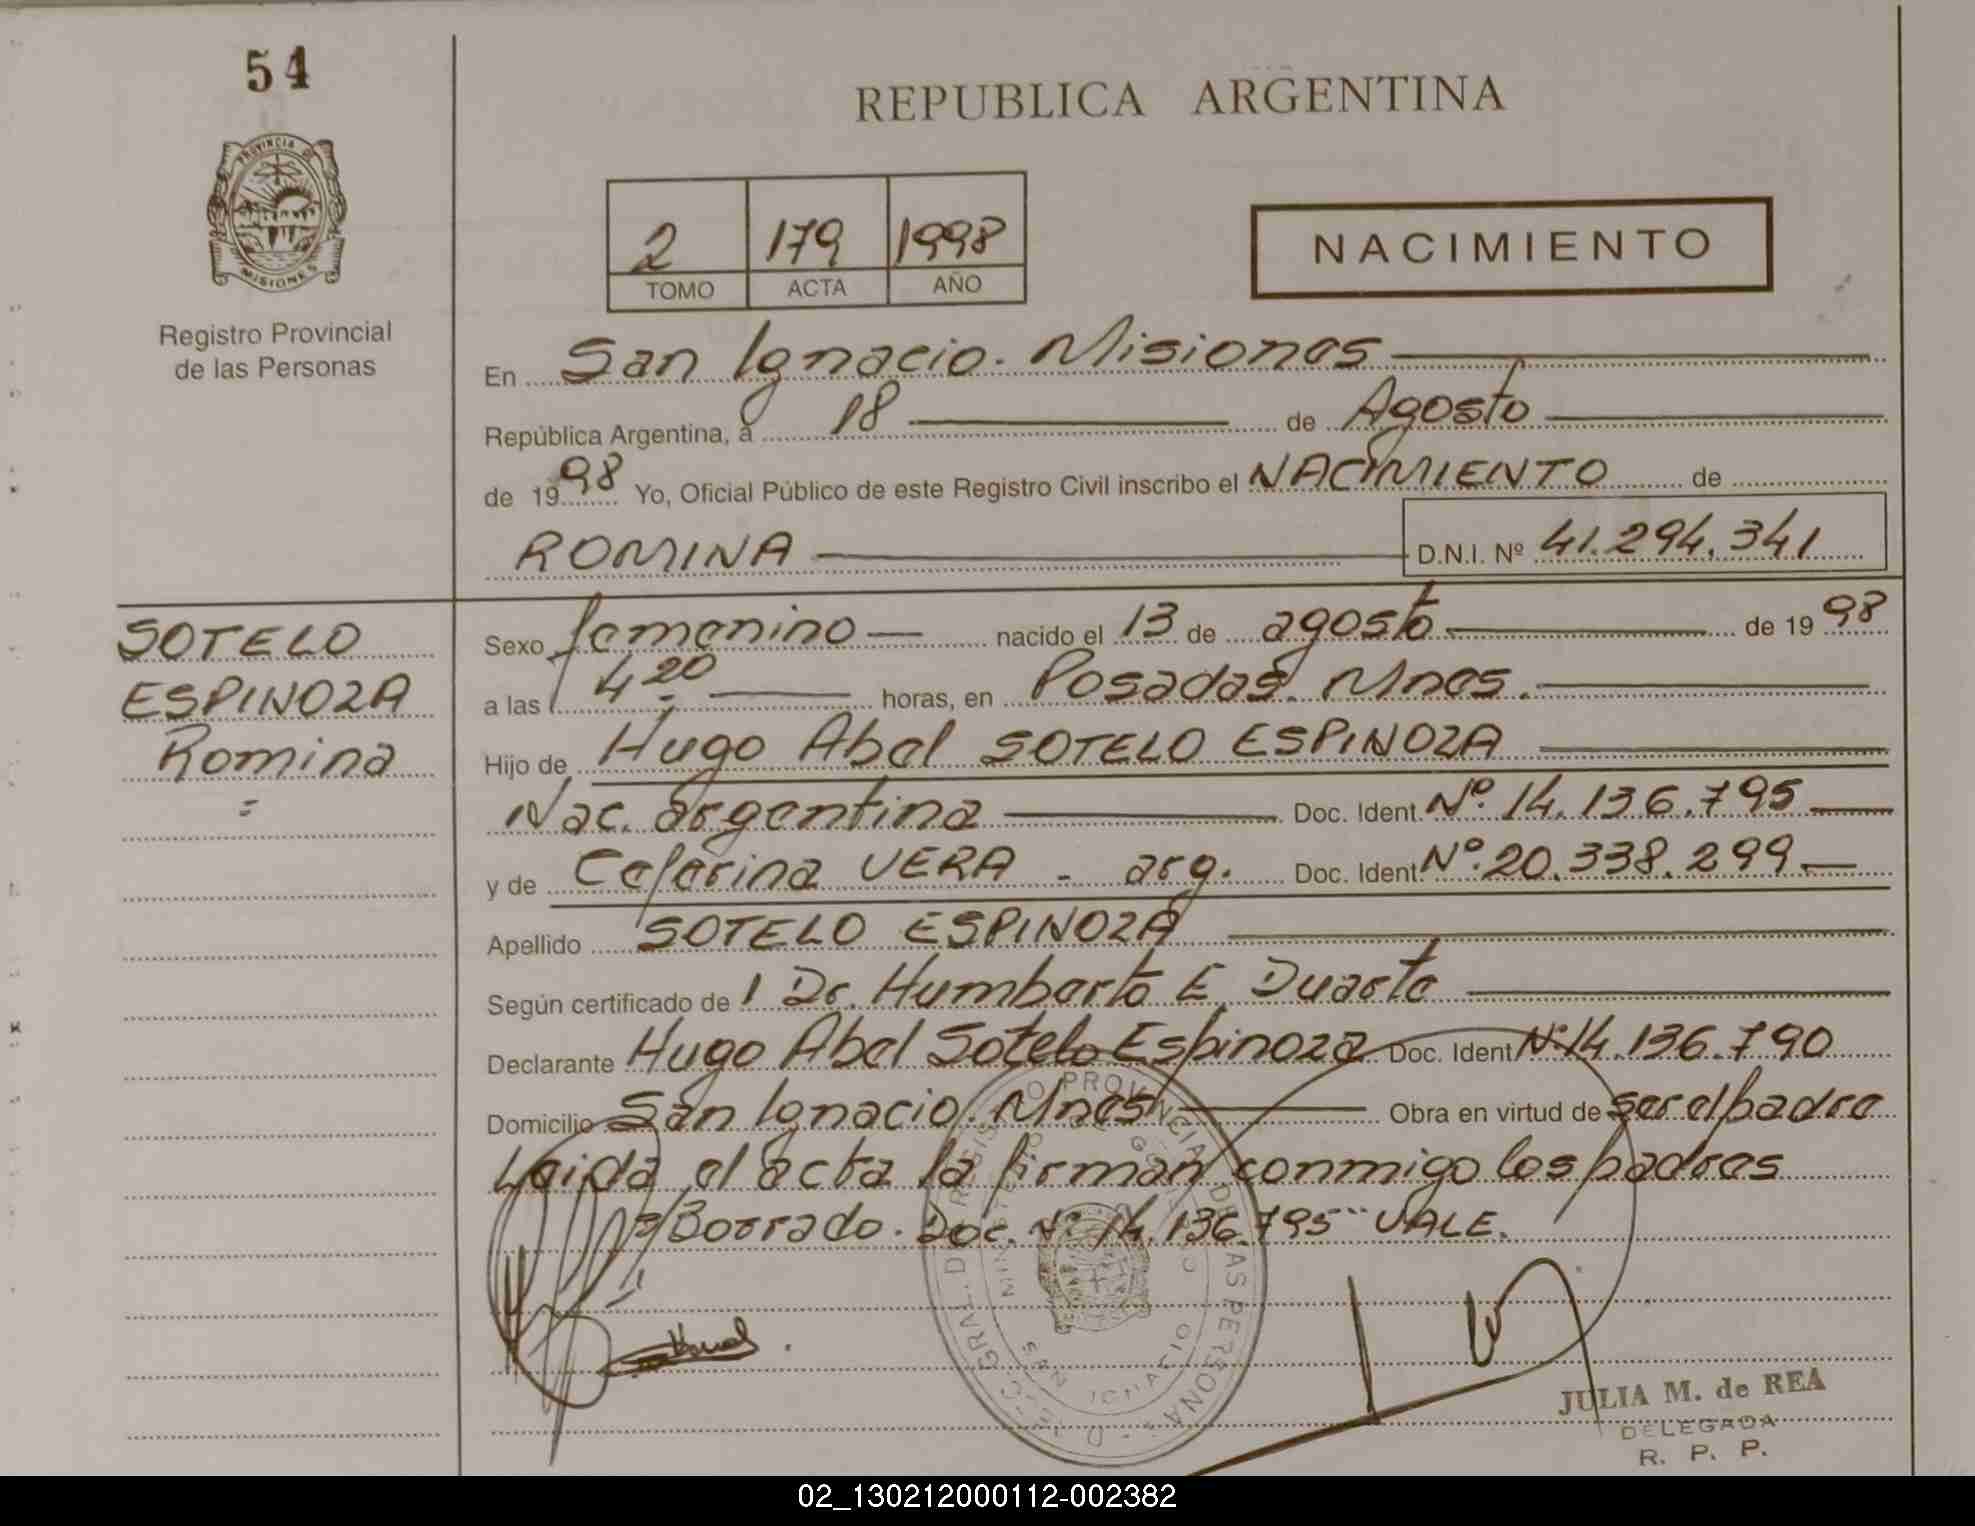 54
REPUBLICA ARGENTINA
PROVINCIA DE
MISIONES
Registro Provincial
de las Personas
2 179 1998
TOMO ACTA AÑO
NACIMIENTO
En San Ignacio. Misiones
República Argentina, a 18 de Agosto
de 1998 Yo, Oficial Público de este Registro Civil inscribo el NACIMIENTO de
ROMINA D.N.I. Nº 41.294.341
SOTELO
ESPINOZA
Romina
Sexo femenino nacido el 13 de agosto de 1998
a las 4 20 horas, en Posadas. Mnes.
Hijo de Hugo Abel SOTELO ESPINOZA
Nac. argentina Doc. Ident. Nº. 14.136.795
y de Ceferina VERA - arg. Doc. Ident. Nº. 20.338.299
Apellido SOTELO ESPINOZA
Según certificado de Dr. Humberto E. Duarte
Declarante Hugo Abel Sotelo Espinoza Doc. Ident Nº 14.136.790
Domicilio San Ignacio. Mnes Obra en virtud de ser el padre
Leida el acta la firman conmigo los padres
Borrado. Doc. Nº 14.136.795 VALE.
JULIA M. de REA
DELEGADA
R. P. P.
02_130212000112-002382